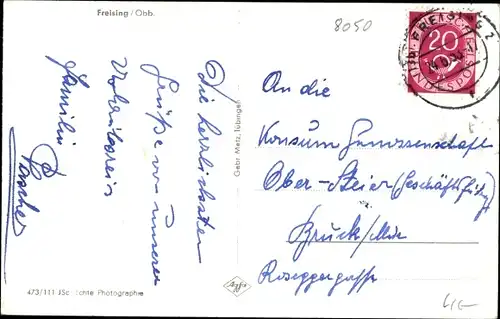 Freising / Obb.
8050
FREISING 2
DEUTSCHE BUNDESPOST
20
Die herzlichsten
Grüße von unserer
Familie
Gebr. Metz, Tübingen
An die
Konsum Genossenschaft
Ober-Steier (Geschäftsführg
Bruck/Mur
Roseggergasse
Agfa
473/111 JSc Echte Photographie